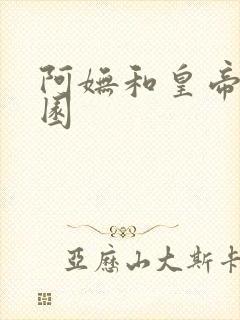 阿嫵和皇帝
園
亞歷山大斯卡